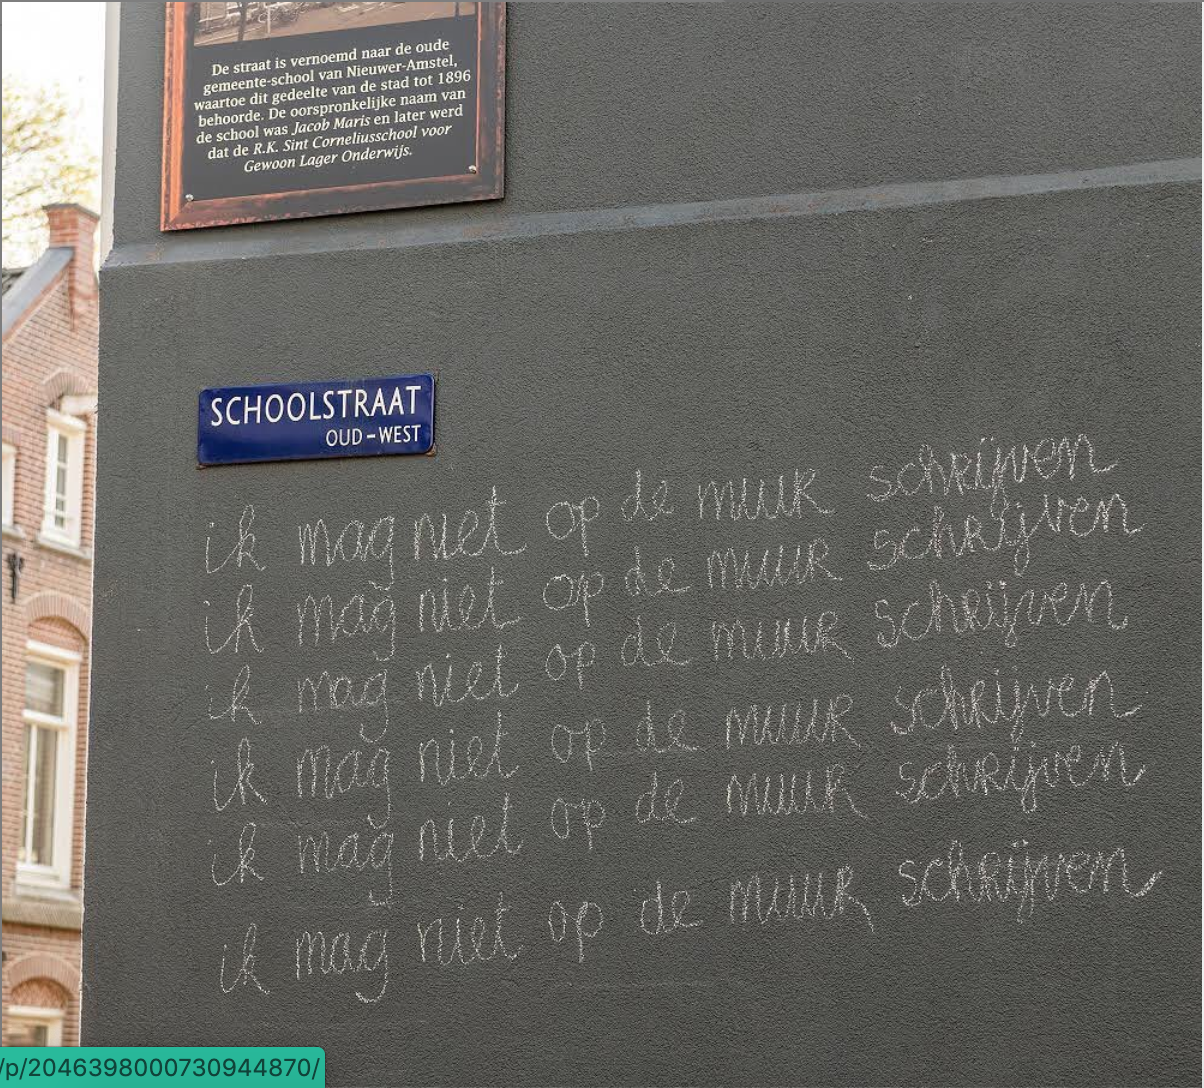 De straat is vernoemd naar de oude
gemeente-school van Nieuwer-Amstel,
waartoe dit gedeelte van de stad tot 1896
behoorde. De oorspronkelijke naam van
de school was Jacob Maris en later werd
dat de R.K. Sint Corneliusschool voor
Gewoon Lager Onderwijs.
SCHOOLSTRAAT
OUD-WEST
ik mag niet op de muur schrijven
ik mag niet op de muur schrijven
ik mag niet op de muur schrijven
ik mag niet op de muur schrijven
ik mag niet op de muur schrijven
ik mag niet op de muur schrijven
/p/2046398000730944870/